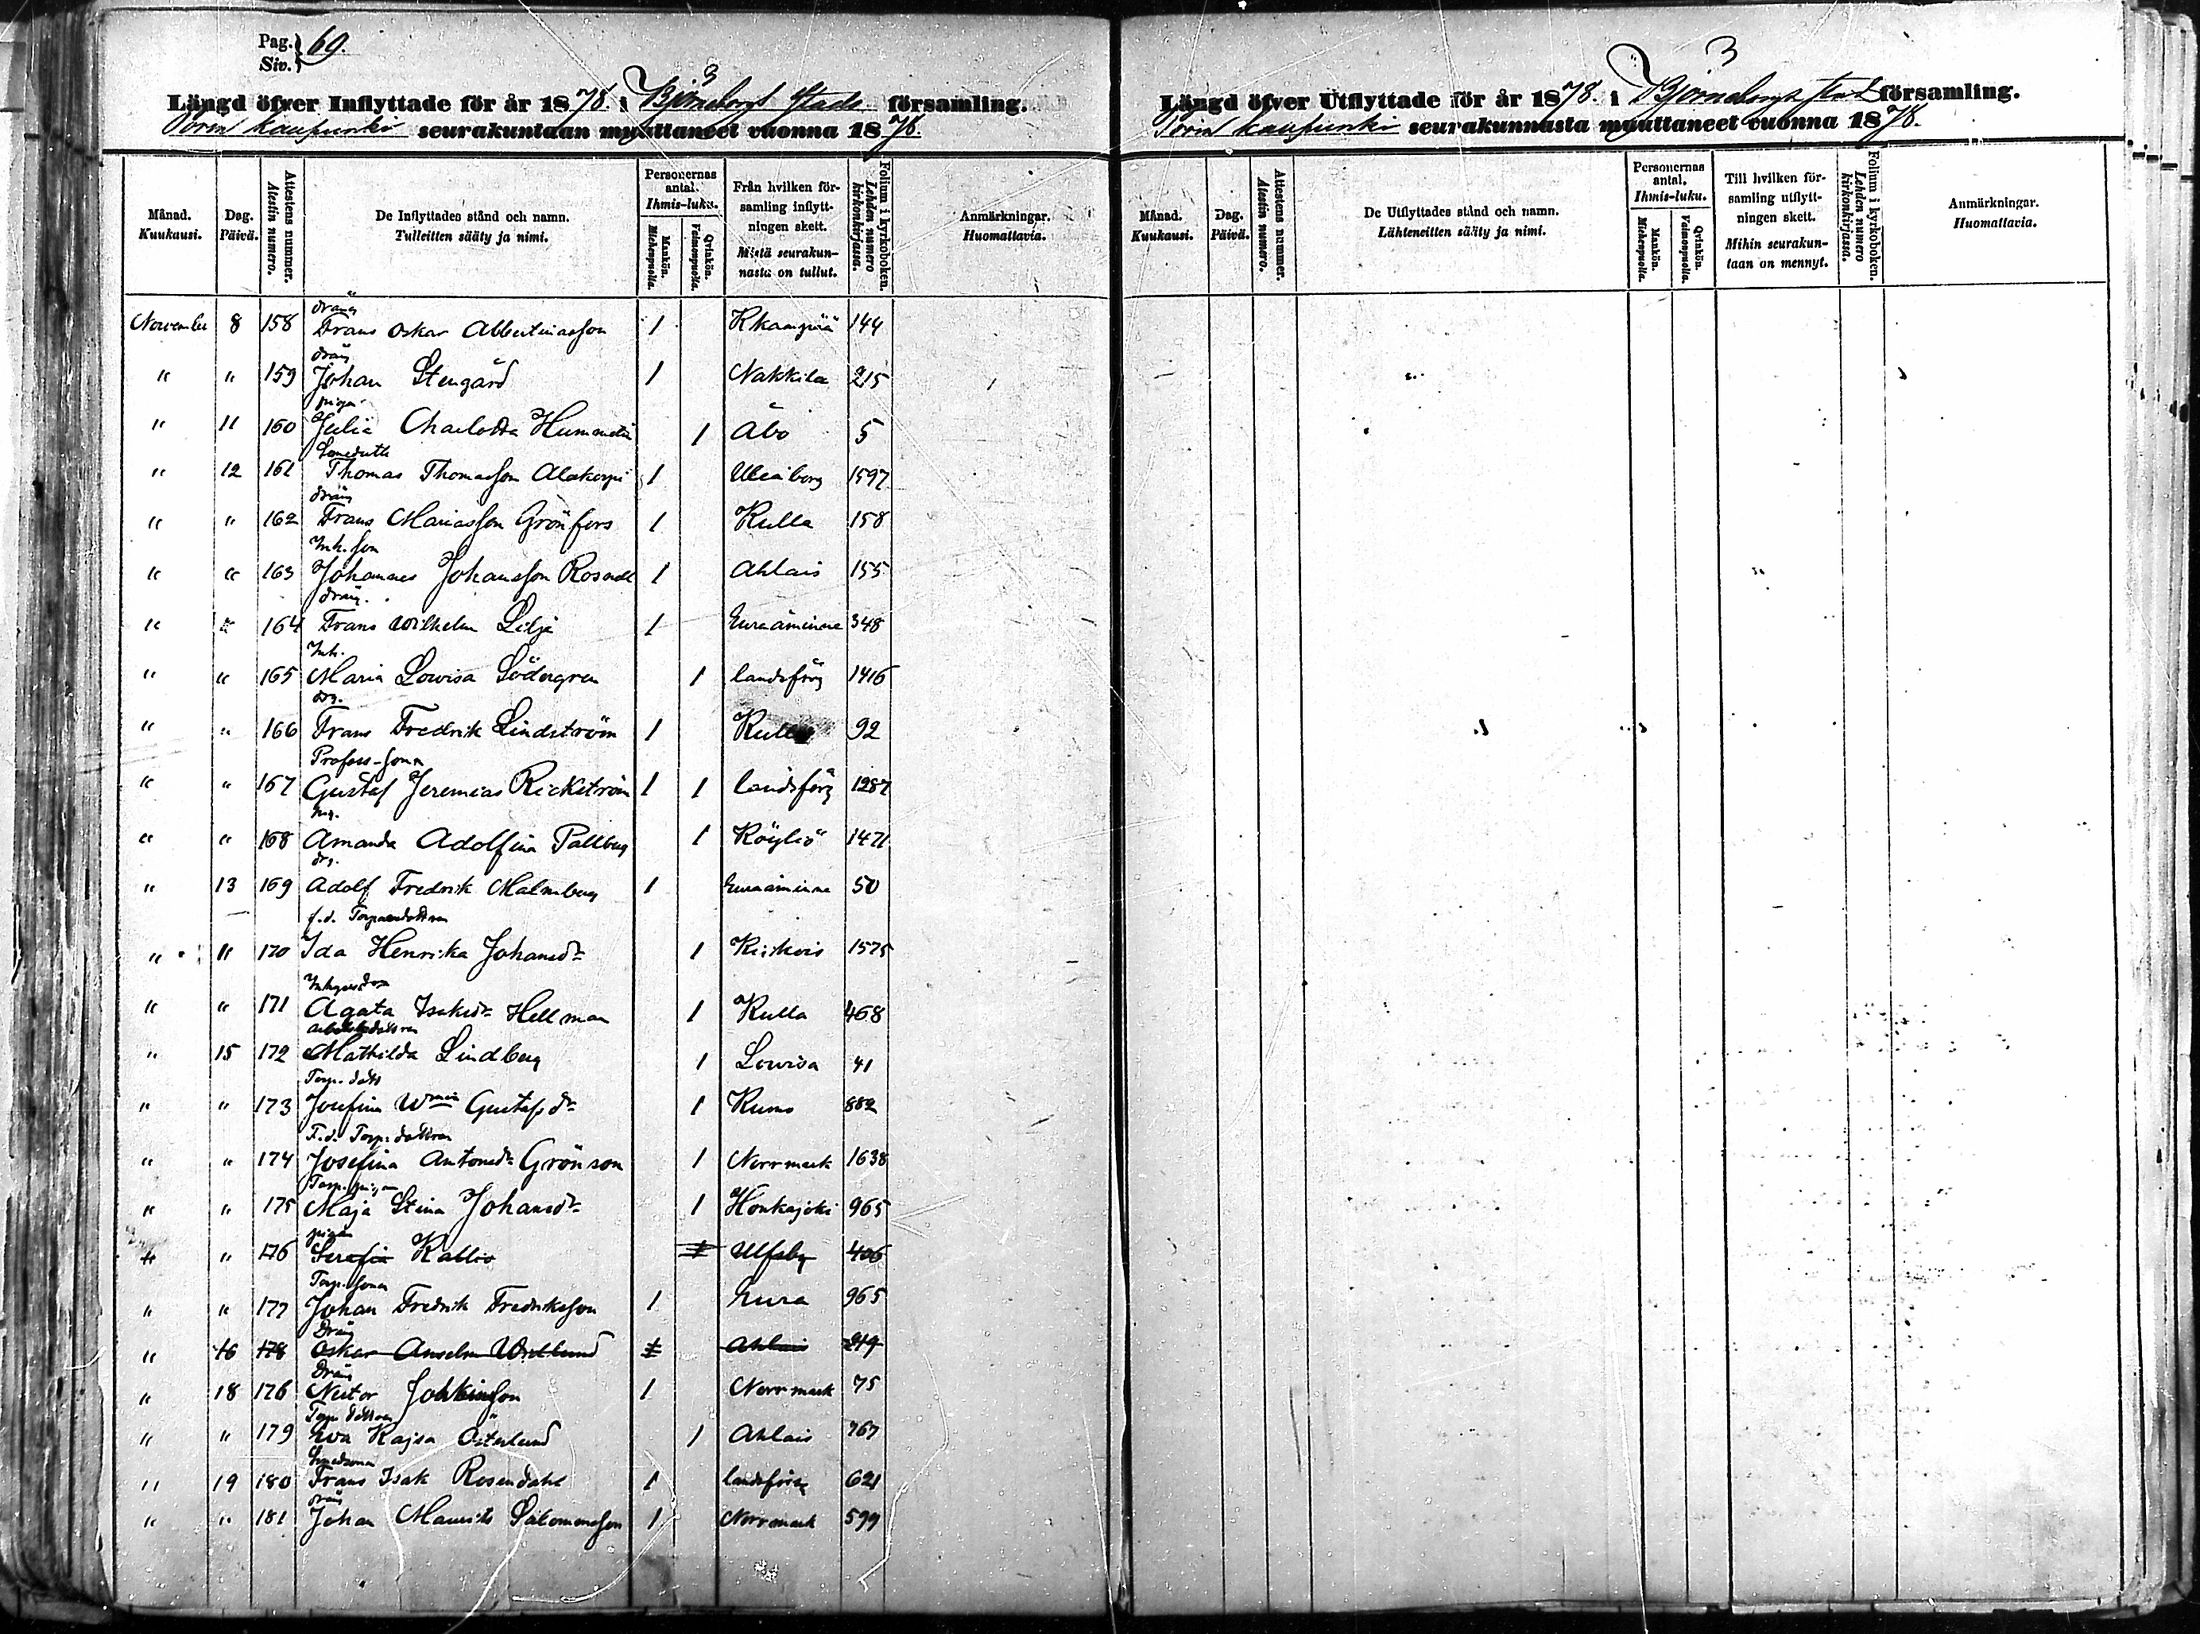 Pag. } 69.
Siv. }
Längd öfver Inflyttade för år 1878. i Björneborgs stads församling.
Porin kaupunki seurakuntaan muuttaneet vuonna 1878.
Månad. Kuukausi. | Dag. Päivä. | Attestens nummer. Atestin numero. | De Inflyttades stånd och namn. Tulleitten sääty ja nimi. | Personernas antal. Ihmis-luku. Mankön. Miehenpuolia. Qvinkön. Vaimonpuolia. | Från hvilken församling inflyttningen skett. Mistä seurakunnasta on tullut. | Folium i kyrkoboken. Lehden numero kirkonkirjassa. | Anmärkningar. Huomattavia.
dräng
November 8 158 Frans Oskar Albertinasson 1 144
dräng
" " 159 Johan Stengård 1 Nakkila 215
pigan
" 11 160 Julia Charlotta 1 Åbo 5
" 12 161 Thomas Thomasson Alakorpi 1 Uleåborg 1597
dräng
" " 162 Frans Mariasson Grönfors 1 Kulla 158
Inh. son
" " 163 Johannes Johansson 1 Ahlais 155
dräng.
" " 164 Frans Wilhelm Lilja 1 Euraåminne 348
Inh.
" " 165 Maria Lovisa Södergren 1 landsförs 1416
drg.
" " 166 Frans Fredrik Lindström 1 Kulla 92
" " 167 Gustaf Jeremias Rickström 1 1 landsförs 1287
" " 168 Amanda Adolfina Pallberg 1 Köyliö 1471
drg.
" 13 169 Adolf Fredrik Malmberg 1 Euraåminne 50
f.d. Torparedottren
" " 170 Ida Henrika Johansdr 1 Kiikois 1575
" " 171 Agata Isaksdr Hellman 1 Kulla 468
" 15 172 Mathilda Lindberg 1 Lovisa 41
Torp. dott
" " 173 Josefina Wmina Gustafsdr 1 Kumo 882
F.d. Torp. dottren
" " 174 Josefina Antonsdr Grönroos 1 Norrmark 1638
Torp. pigan
" " 175 Maja Stina Johansdr 1 Honkajoki 965
pigan
" " 176 Serafia Kallio 1 Ulfsby 406
Torp. sonen
" " 177 Johan Fredrik Fredriksson 1 Eura 965
Dräng
" 16 178 Oskar Anselm Widlund 1 Ahlais 219
Dräng
" 18 176 Nestor 1 Norrmark 75
Torp dottren
" " 179 Eva Kajsa Österlund 1 Ahlais 767
" 19 180 Frans Isak Rosendahl 1 landsförs 621
dräng
" " 181 Johan Maurits Salomonsson 1 Norrmark 599
3
Längd öfver Utflyttade för år 1878. i Björneborgs stad församling.
Porin kaupunki seurakunnasta muuttaneet vuonna 1878.
Månad. Kuukausi. | Dag. Päivä. | Attestens nummer. Atestin numero. | De Utflyttades stånd och namn. Lähteneitten sääty ja nimi. | Personernas antal. Ihmis-luku. Mankön. Miehenpuolia. Qvinkön. Vaimonpuolia. | Till hvilken församling utflyttningen skett. Mihin seurakuntaan on mennyt. | Folium i kyrkoboken. Lehden numero kirkonkirjassa. | Anmärkningar. Huomattavia.